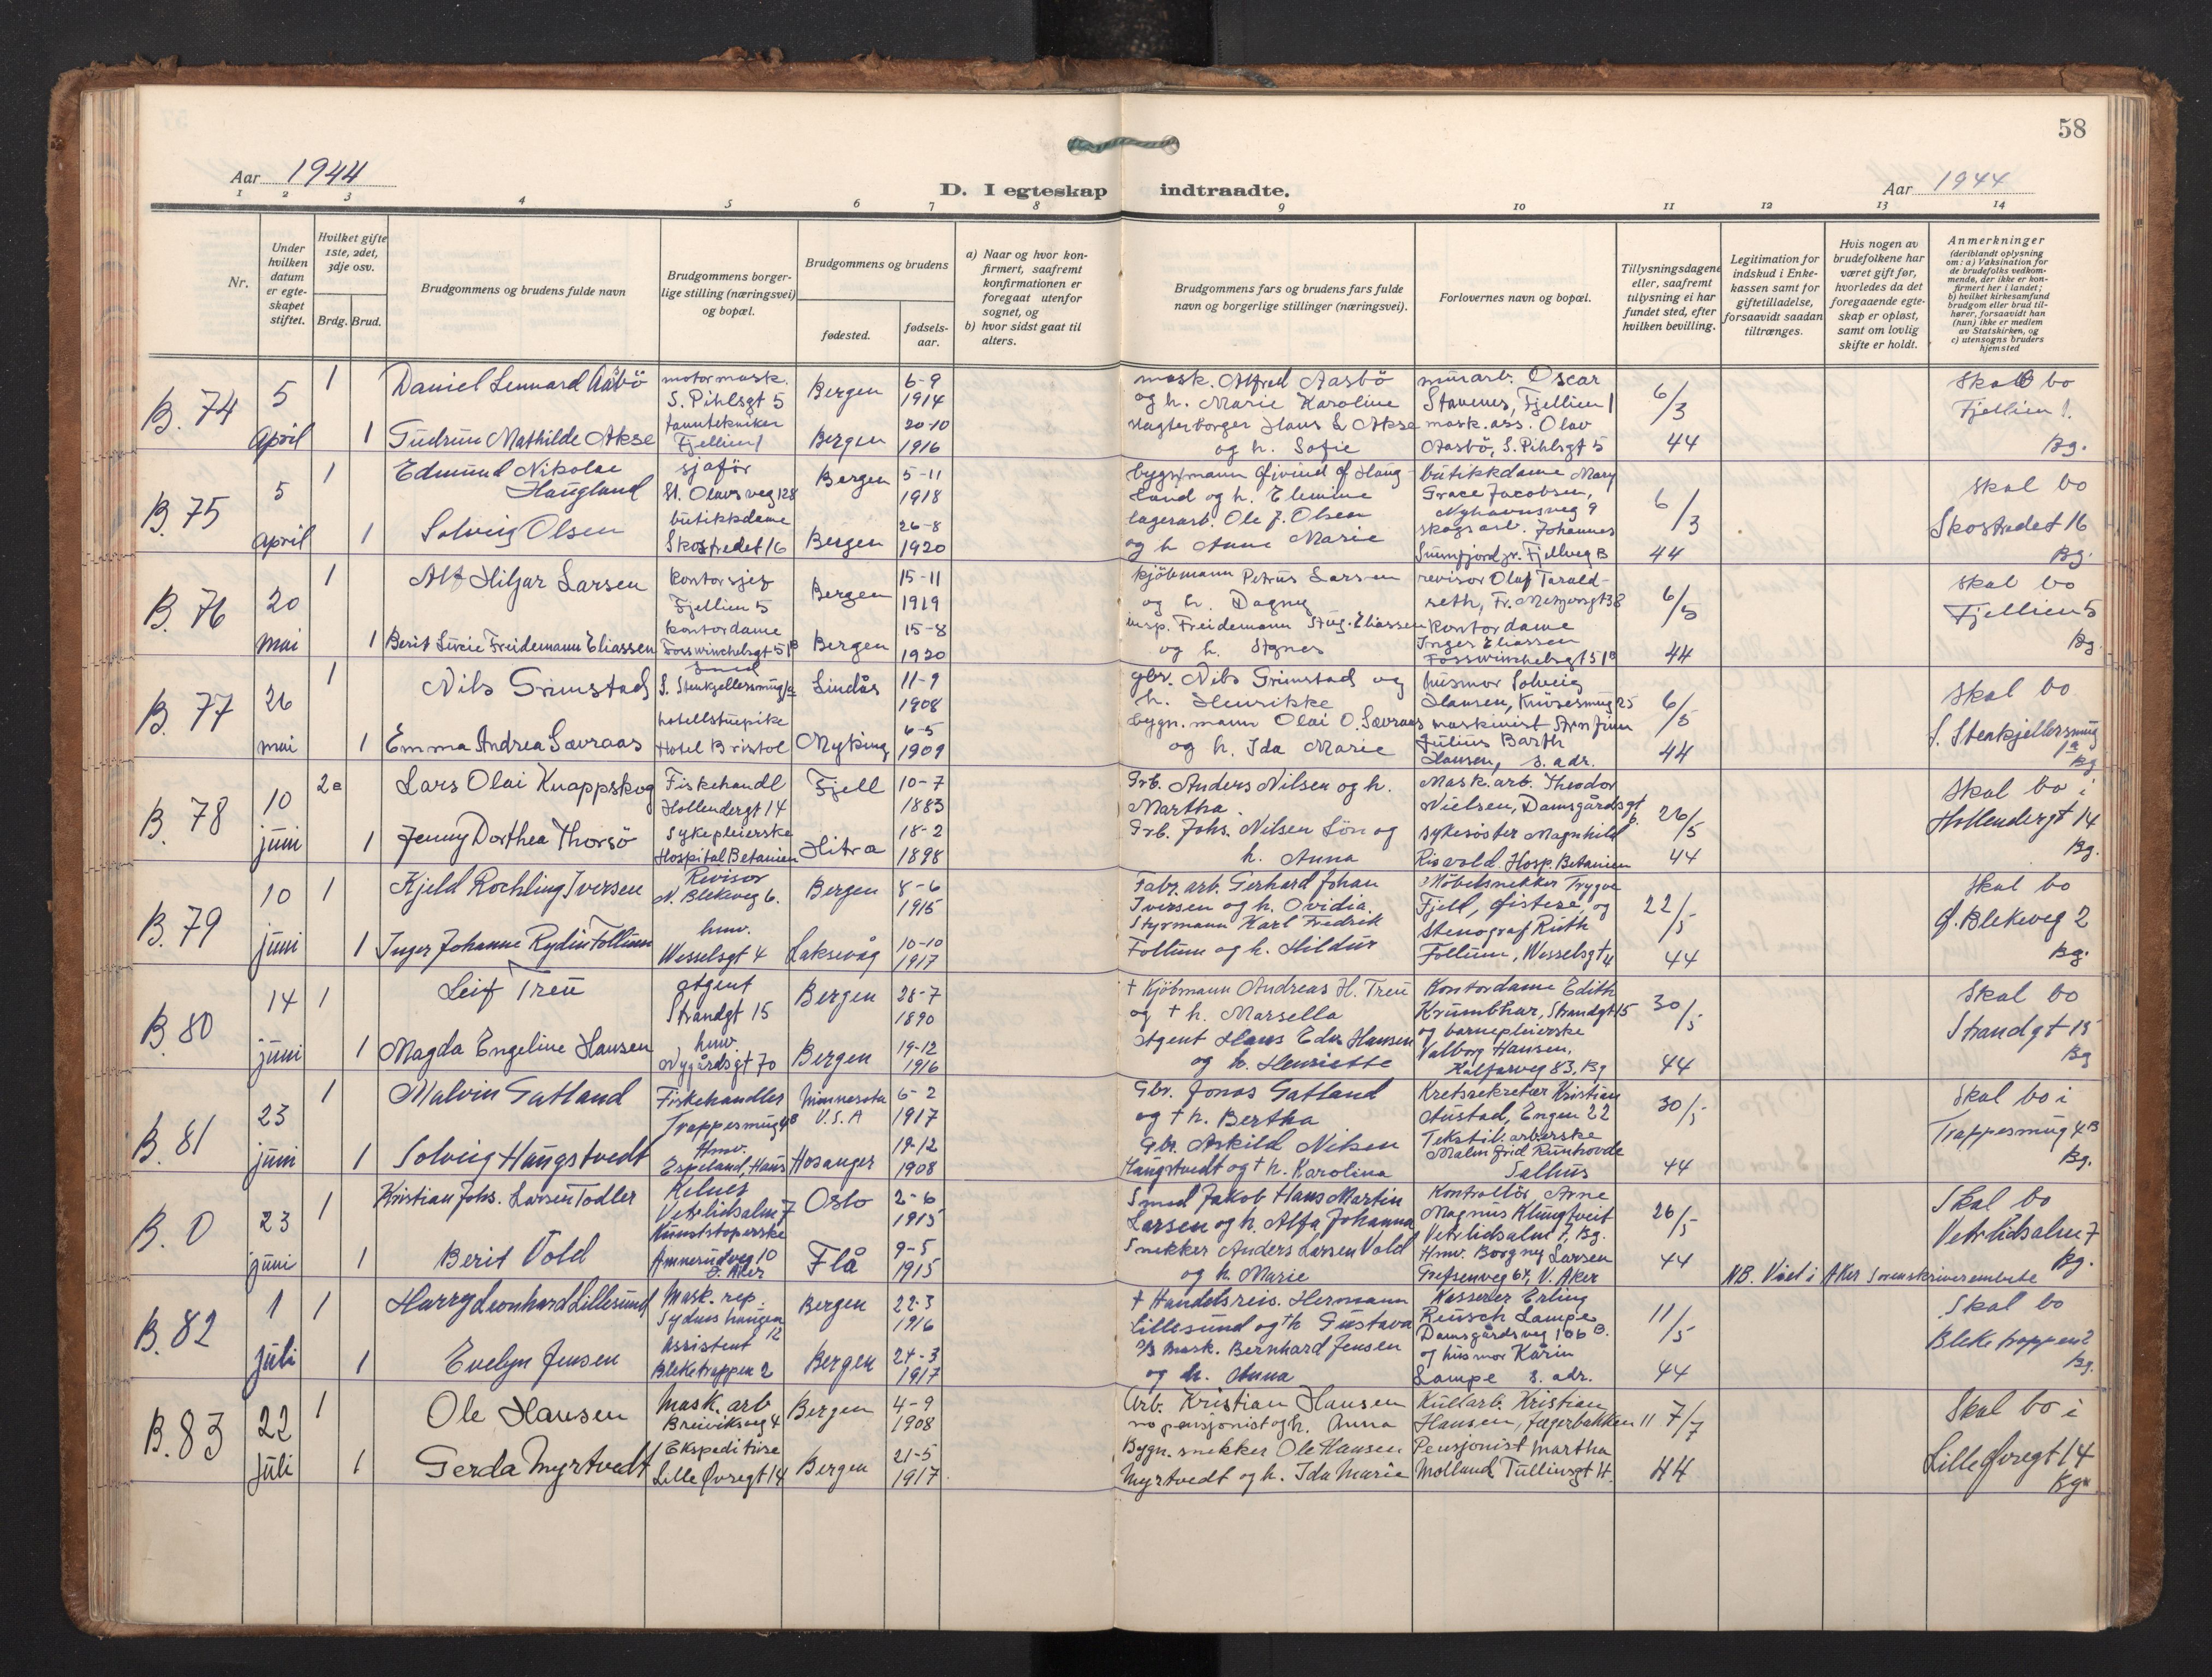 58
Aar 1944
D. I egteskap indtraadte.
Aar 1944
1 2 3 4 5 6 7 8 9 10 11 12 13 14
Nr.
Under hvilken datum er egteskapet stiftet.
Hvilket gifte 1ste, 2det, 3dje osv.
Brdg. Brud.
Brudgommens og brudens fulde navn
Brudgommens borgerlige stilling (næringsvei) og bopæl.
Brudgommens og brudens
fødested.
fødselsaar.
a) Naar og hvor konfirmert, saafremt konfirmationen er foregaat utenfor sognet, og
b) hvor sidst gaat til alters.
Brudgommens fars og brudens fars fulde navn og borgerlige stillinger (næringsvei).
Forlovernes navn og bopæl.
Tillysningsdagene eller, saafremt tillysning ei har fundet sted, efter hvilken bevilling.
Legitimation for indskud i Enkekassen samt for giftetilladelse, forsaavidt saadan tiltrænges.
Hvis nogen av brudefolkene har været gift før, hvorledes da det foregaaende egteskap er opløst, samt om lovlig skifte er holdt.
Anmerkninger
(deriblandt oplysning om: a) Vaksination for de brudefolks vedkommende, der ikke er konfirmert her i landet; b) hvilket kirkesamfund brudgom eller brud tilhører, forsaavidt han (hun) ikke er medlem av Statskirken, og c) utensogns bruders hjemsted
B. 74
5 april
1 Daniel Lennard Aasbö
motormask. S. Pihlsgt 5
Bergen 6-9 1914
mask. Alfred Aasbö og h. Marie Karoline
murarb. Oscar Stavenes, Fjellien 1
6/3 44
Skal bo Fjellien 1. Bg.
1 Gudrun Mathilde Akse
tanntekniker Fjellien 1
Bergen 20-10 1916
slagterborger Hans L Akse og h. Sofie
mask. ass. Olav Aasbö, S. Pihlsgt 5
B. 75
5 april
1 Edmund Nikolai Haugland
sjaför St. Olavs veg 128
Bergen 5-11 1918
bygn.mann Øivind Haugland og h. Elemine
butikkdame Mary Grace Jacobsen, Nyhavnsveg 9
6/3 44
skal bo Skostredet 16 Bg.
1 Solveig Olsen
butikkdame Skostredet 16
Bergen 26-8 1920
lagerarb. Ole J. Olsen og h Anne Marie
skogsarb. Johannes Sunnfjord, Fjellveg B
B. 76
20 mai
1 Alf Hiljar Larsen
kontorsjef Fjellien 5
Bergen 15-11 1919
kjöbmann Petrus Larsen og h. Dagny
revisor Olaf Taraldseth, Fr. Meltzersgt 38
6/5 44
skal bo Fjellien 5 Bg.
1 Berit Lucie Freidemann Eliassen
kontordame Fosswinchelsgt 51B
Bergen 15-8 1920
insp. Freidemann Aug. Eliassen og h. Agnes
kontordame Inger Eliassen Fosswinchelsgt 51B
B. 77
26 mai
1 Nils Grimstad
smed S. Stenkjellersmug 1a
Lindås 11-9 1908
gbr. Nils Grimstad og h. Henrikke
husmor Solveig Hansen, Knösesmug 25
6/5 44
skal bo S. Stenkjellersmug 1a Bg
1 Emma Andrea Sævraas
hotellstuepike Hotel Bristol
Myking 6-5 1909
bygn. mann Olai O. Sævraas og h. Ida Marie
maskinist Julius Barth Hansen, s. adr.
B. 78
10 juni
2e Lars Olai Knappskog
Fiskehandl Hollendergt 14
Fjell 10-7 1883
Grb. Anders Nilsen og h. Martha.
Mask. arb. Theodor Nielsen, Damsgårdsgt
26/5 44
Skal bo i Hollendergt 14 Bg.
1 Jenny Dorthea Thorsö
Sykepleierske Hospital Betanien
Hitra 18-2 1898
Grb. Johs. Nilsen Sön og h. Anna
sykesöster Magnhild Risvold. Hosp. Betanien
B. 79
10 juni
1 Kjeld Rochling Iversen
Revisor N. Blekeveg 6.
Bergen 8-6 1915
Fabr. arb. Gerhard Johan Iversen og h. Ovidia.
Möbelsnekker Trygve Fjell, Øistese, og
22/5 44
Skal bo Ø. Blekeveg 2 Bg.
1 Inger Johanne Rydin Follum
hmv. Wesselsgt 4
Laksevåg 10-10 1917
Styrmann Karl Fredrik Follum og h. Hildur
Stenograf Ruth Follum, Wesselsgt 4
B. 80
14 juni
1 Leif Treu
Agent Strandgt 15
Bergen 28-7 1890
† Kjöbmann Andreas H. Treu og † h. Marsella
Kontordame Edith Krumbhar, Strandgt 15
30/5 44
Skal bo Strandgt 15 Bg
1 Magda Engeline Hansen
hmv. Nygårdsgt 70
Bergen 19-12 1916
Agent Hans Edv. Hansen og h. Henriette
og barnepleierske Valborg Hansen, Kalfarveg 83, Bg
B. 81
23 juni
1 Malvin Gatland
Fiskehandler Trappesmug 4B
Minnesota U.S.A 6-2 1917
Gbr. Jonas Gatland og † h. Bertha
Kretssekretær Kristian Austad, Engen 22
30/5 44
Skal bo i Trappesmug 4B Bg.
1 Solveig Haugstvedt
Hmv. Espeland, Haus
Hosanger 19-12 1908
Gbr. Askild Nilsen Haugstvedt og † h. Karolina
Tekstil. arberske Malmfrid Runhovde Salhus
B. 0
23 juni
1 Kristian Johs. Larsen Todler
Kelner Vetrlidsalm 7
Oslo 2-6 1915
Smed Jakob Hans Martin Larsen og h. Alfa Johanna
Kontrollör Arne Magnus Klungtveit Vetrlidsalm 7, Bg.
26/5 44
Skal bo Vetrlidsalm 7 Bg.
1 Berit Vold
Kunststoperske Ammerudveg 10 Ö. Aker
Flå 9-5 1915
Snekker Anders Larsen Vold og h. Marie
Hmv. Borgny Larsen Grefsenveg 64, V. Aker
NB. Viet i Aker Sorenskriverembete
B. 82
1 juli
1 Harry Leonhard Lillesund
Mask. rep. Sydneshaugen 12
Bergen 22-3 1916
† Handelsreis. Hermann Lillesund og † h Gustava
Kasserer Erling Reusch Lampe Damsgårdsveg 106 B.
11/5 44
Skal bo Bleketrappen 2 Bg.
1 Evelyn Jensen
Assistent Bleketrappen 2
Bergen 24-3 1917
Mask. Bernhard Jensen og h. Anna
og husmor Karin Lampe s. adr.
B. 83
22 juli
1 Ole Hansen
Mask. arb Breiviksveg 4
Bergen 4-9 1908
Arb. Kristian Hansen no pensjonist og h. Anna
Kullarb. Kristian Hansen, Jægerbakken 11
7/7 44
Skal bo i Lille Øvregt 14 Bg.
1 Gerda Myrtvedt
Ekspeditrise Lille Øvregt 14
Bergen 21-5 1917.
Bygn. snekker Ole Hansen Myrtvedt og h. Ida Marie
Pensjonist Martha Molland, Tulliusgt 4.